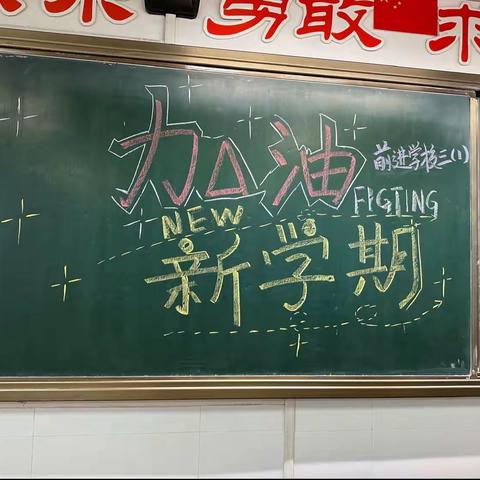 勇敢 求
加油
前进学校三(1)
FPGTING
NEW
新学期